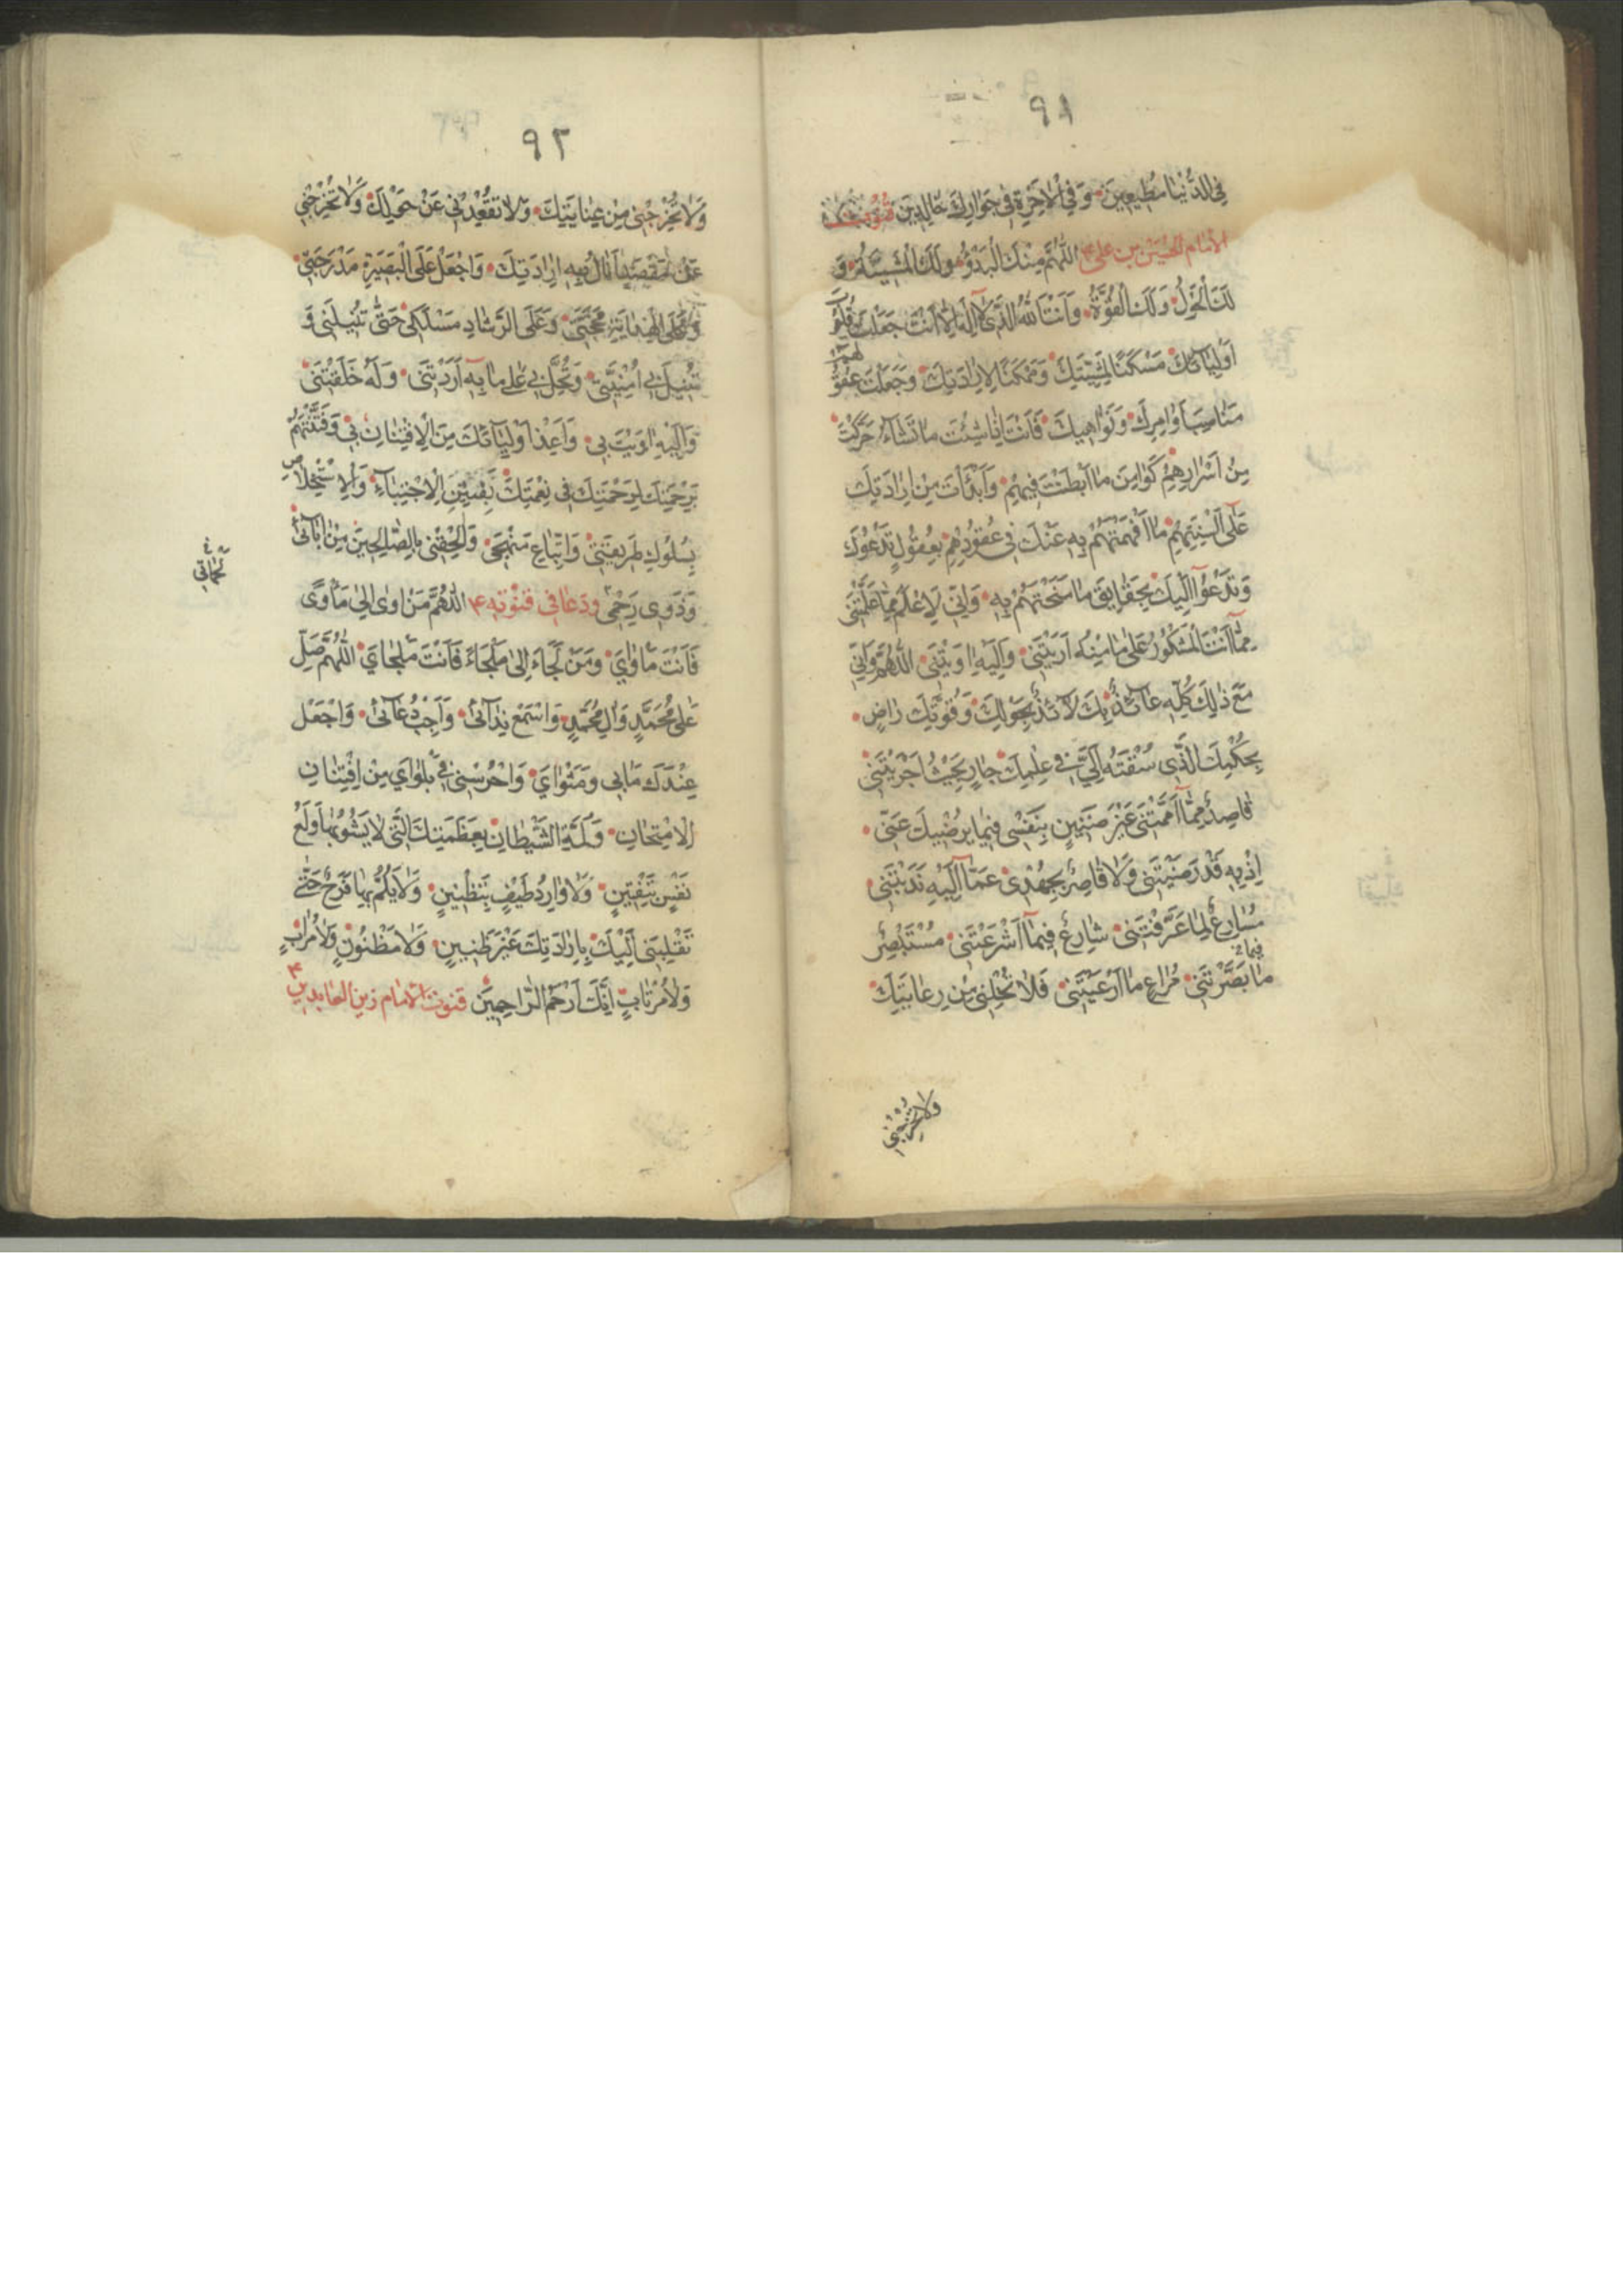 ٩١
فِي الدُّنْيَا مُطِيعِينَ وَفِي الْاٰخِرَةِ فِي جَوَارِكَ خَالِدِينَ قنوت
الامام الحسين بن علي ع اَللّٰهُمَّ مِنْكَ الْبَدْؤُ وَلَكَ الْمَشِيَّةُ وَ
لَكَ الْحَوْلُ وَلَكَ الْقُوَّةُ وَاَنْتَ اللّٰهُ الَّذِي لَا اِلٰهَ اِلَّا اَنْتَ جَعَلْتَ قُلُوبَ
اَوْلِيَائِكَ مَسْكَنًا لِمَشِيَّتِكَ وَمَكْمَنًا لِاِرَادَتِكَ وَجَعَلْتَ عُقُو
لهم
مَنَاصِبَ اَوَامِرِكَ وَنَوَاهِيكَ فَاَنْتَ اِذَا شِئْتَ مَا تَشَاءُ حَرَّكْتَ
مِنْ اَسْرَارِهِمْ كَوَامِنَ مَا اَبْطَنْتَ فِيهِمْ وَاَبْدَأْتَ مِنْ اِرَادَتِكَ
عَلٰى اَلْسِنَتِهِمْ مَا اَفْهَمْتَهُمْ بِهِ عَنْكَ فِي عُقُودِهِمْ بِعُقُولٍ تَدْعُوكَ
وَتَدْعُو اِلَيْكَ بِحَقَايِقِ مَا مَنَحْتَهُمْ بِهِ وَاِنِّي لَاَعْلَمُ مِمَّا عَلَّمْتَنِي
مِمَّا اَنْتَ الْمَشْكُورُ عَلٰى مَا مِنْهُ اَرَيْتَنِي وَاِلَيْهِ اٰوَيْتَنِي اَللّٰهُمَّ وَاِنِّي
مَعَ ذٰلِكَ كُلِّهِ عَائِذٌ بِكَ لَائِذٌ بِحَوْلِكَ وَقُوَّتِكَ رَاضٍ
بِحُكْمِكَ الَّذِي سُقْتَهُ اِلَيَّ فِي عِلْمِكَ جَارٍ بِحَيْثُ اَجْرَيْتَنِي
قَاصِدٌ مِمَّا اَمَّمْتَنِي غَيْرَ ضَنِينٍ بِنَفْسِي فِيمَا يُرْضِيكَ عَنِّي
اِذْ بِهِ قَدْ رَضَّيْتَنِي وَلَا قَاصِرٌ بِجُهْدِي عَمَّا اِلَيْهِ نَدَبْتَنِي
مُسَارِعٌ لِمَا عَرَّفْتَنِي شَارِعٌ فِيمَا اَشْرَعْتَنِي مُسْتَبْصِرٌ
فيما
مَا بَصَّرْتَنِي مُرَاعٍ مَا اَرْعَيْتَنِي فَلَا تُخْلِنِي مِنْ رِعَايَتِكَ
ولا تخرجني
٩٢
وَلَا تُخْرِجْنِي مِنْ عِنَايَتِكَ وَلَا تُقْعِدْنِي عَنْ حَوْلِكَ وَلَا تُخْرِجْنِي
عَنْ مَقْصَدٍ اَنَالُ بِهِ اِرَادَتَكَ وَاجْعَلْ عَلَى الْبَصِيرَةِ مَدْرَجَتِي
وَعَلَى الْهِدَايَةِ مَحَجَّتِي وَعَلَى الرَّشَادِ مَسْلَكِي حَتّٰى تُنِيلَنِي وَ
تُنِيلَ بِي اُمْنِيَّتِي وَتُحِلَّ بِي عَلٰى مَا بِهِ اَرَدْتَنِي وَلَهُ خَلَقْتَنِي
وَاِلَيْهِ اٰوَيْتَ بِي وَاَعِذْ اَوْلِيَائَكَ مِنَ الْاِفْتِتَانِ بِي وَفَتِّنْهُمْ
بِرَحْمَتِكَ لِرَحْمَتِكَ فِي نِعْمَتِكَ تَفْتِينَ الْاِجْتِبَاءِ وَالْاِسْتِخْلَاصِ
بِسُلُوكِ طَرِيقَتِي وَاتِّبَاعِ مَنْهَجِي وَاَلْحِقْنِي بِالصَّالِحِينَ مِنْ اٰبَائِي
وَذَوِي رَحِمِي ودعا في قنوته ع اَللّٰهُمَّ مَنْ اَوٰى اِلٰى مَأْوًى
فَاَنْتَ مَأْوَايَ وَمَنْ لَجَاءَ اِلٰى مَلْجَاءٍ فَاَنْتَ مَلْجَايَ اَللّٰهُمَّ صَلِّ
عَلٰى مُحَمَّدٍ وَاٰلِ مُحَمَّدٍ وَاسْمَعْ نِدَائِي وَاَجِبْ دُعَائِي وَاجْعَلْ
عِنْدَكَ مَاٰبِي وَمَثْوَايَ وَاحْرُسْنِي فِي بَلْوَايَ مِنْ اِفْتِتَانِ
الْاِمْتِحَانِ وَلَمَّةِ الشَّيْطَانِ بِعَظَمَتِكَ الَّتِي لَا يَشُوبُهَا وَلَعُ
نَفْسٍ بِتَفْتِينٍ وَلَا وَارِدُ طَيْفٍ بِتَظْنِينٍ وَلَا يَلُمُّ بِهَا فَرَحٌ حَتّٰى
تَقْلِبَنِي اِلَيْكَ بِاِرَادَتِكَ غَيْرَ ظَنِينٍ وَلَا مَظْنُونٍ وَلَا مُرَابٍ
وَلَا مُرْتَابٍ اِنَّكَ اَرْحَمُ الرَّاحِمِينَ قنوت الامام زين العابدين ع